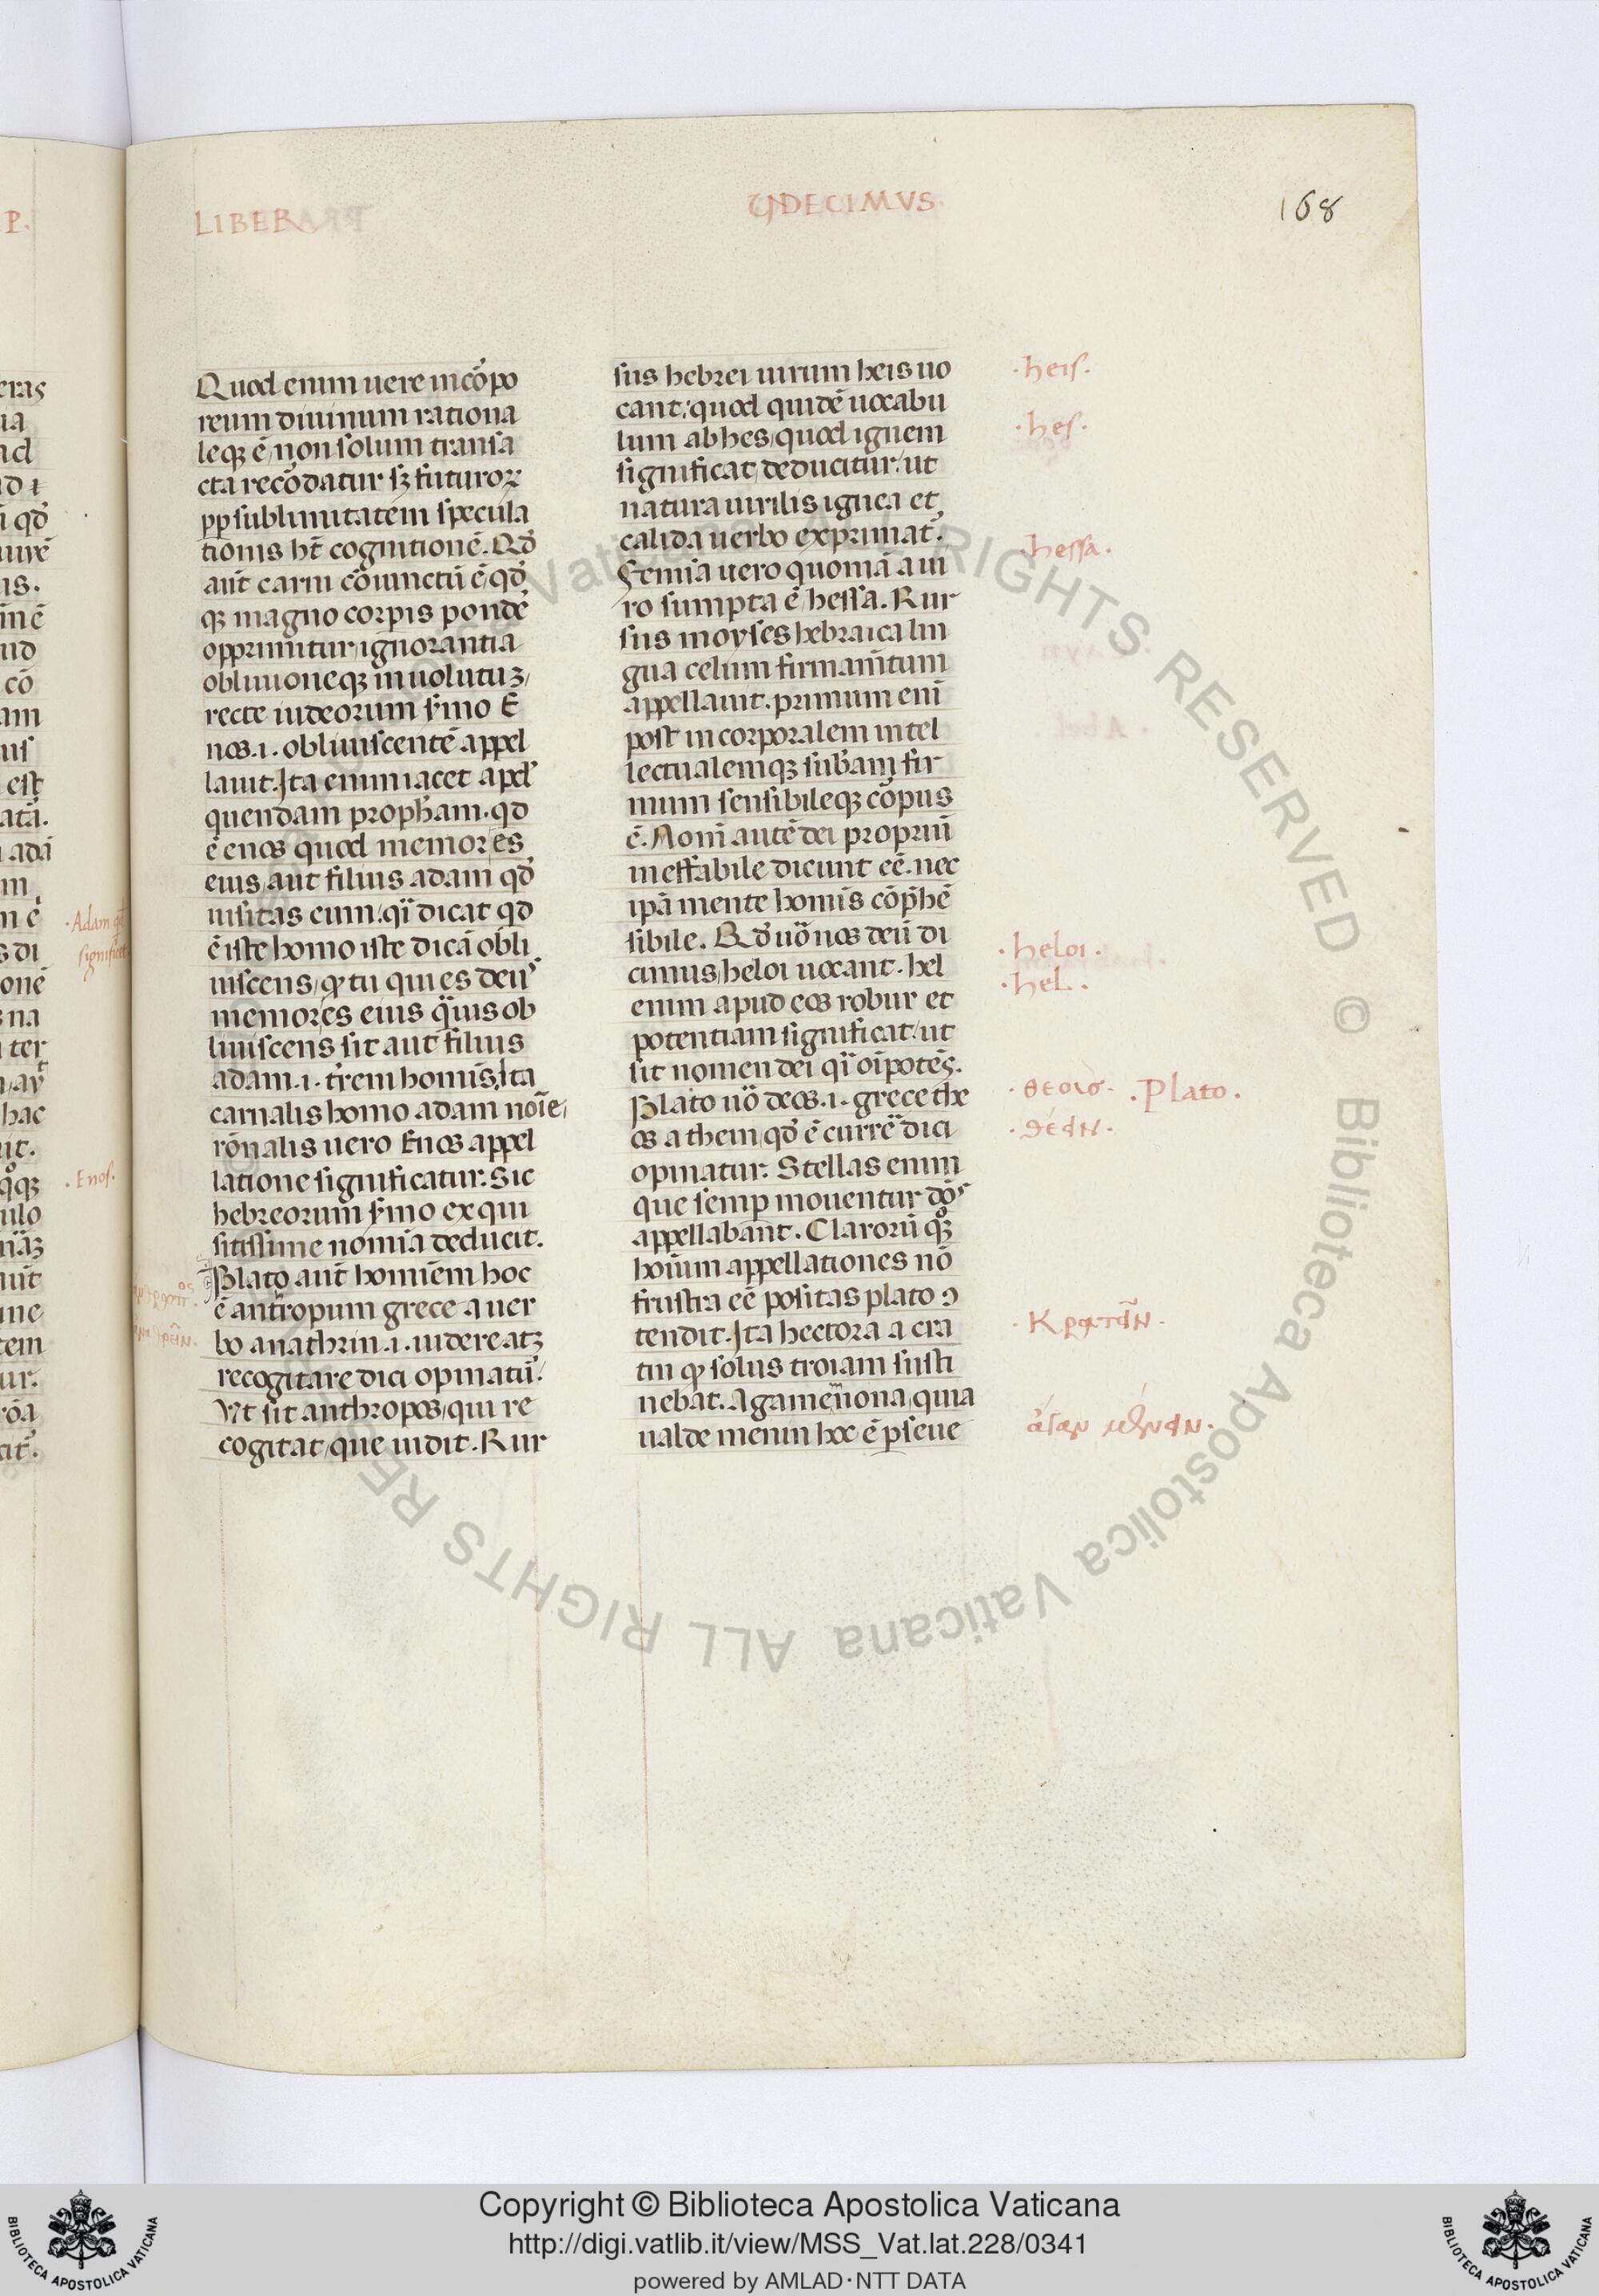 LIBER
VNDECIMVS
168
Quod enim uere incõpo
reum diuinum rationa
leqȝ ẽ, non solum transa
cta recõdatur sȝ futuroꝝ
ꝓp sublimitatem specula
tionis hr̃t cognitionẽ. Qđ
aut̃ carni cõiunctũ ẽ, qđ
qȝ magno corpis pondẽ
opprimitur, ignorantia
obliuioneqȝ inuolutuȝ,
recte iudeorum ẙmo E
nos .i. obliuiscentẽ appel
lauit. Ita enim iacet apđ
quendam prophãm. qđ
ẽ enos quod memor es
eius, aut filius adam qđ
uisitas eum, qĩ dicat qđ
ẽ iste homo iste dicã obli
uiscens, ꝙ tu qui es deus
memor es eius q̃uis ob
liuiscens sit aut̃ filius
adam .i. tr̃rem homĩs, Ita
carnalis homo adam noĩe,
rõnalis uero Enos appel
latione significatur. Sic
hebreorum ẙmo exqui
sitissime nomĩa deducit.
Plato aut̃ homĩem hoc
ẽ antropum grece a uer
bo anathrin .i. uidere atȝ
recogitare dici opinatũ.
Vt sit anthropos, qui re
cogitat, que uidit. Rur
sus hebrei uirum heis uo
cant, quod quidẽ uocabu
lum ab hes, quod ignem
significat, deducitur, ut
natura uirilis ignea et
calida uerbo exprimat̃.
Femĩa uero quoniã a ui
ro sumpta ẽ, hessa. Rur
sus moyses hebraica lin
gua celum firmam̃tum
appellauit. primum enĩ
post incorporalem intel
lectualemqȝ sub̃am fir
mum sensibileqȝ cõpus
ẽ. Nom̃ autẽ dei propriũ
ineffabile dicunt eẽ. nec
ip̃a mente homĩs cõp̃hẽ
sibile. Qđ uõ nos deũ di
cimus, heloi uocant. hel
enim apud eos robur et
potentiam significat, ut
sit nomen dei qĩ oĩpotẽs.
Plato uõ deos .i. grece the
os a them, qđ ẽ currẽ dici
opinatur. Stellas enim
que semp mouentur dõs
appellabant. Clarorũ qȝ
hoĩum appellationes nõ
frustra eẽ positas plato ↄ
tendit. Ita hectora a cra
tin ꝙ solus troiam susti
nebat. Agamẽnona, quia
ualde menin hoc ẽ pseue
·heis·
·hes·
·hessa·
·heloi·
·hel·
·θεοισ· ·Plato·
·θέειν·
·Κρατεῖν·
ἄγαν μένειν·
·Adam qđ
significet
·Enos·
Copyright © Biblioteca Apostolica Vaticana
http://digi.vatlib.it/view/MSS_Vat.lat.228/0341
powered by AMLAD·NTT DATA